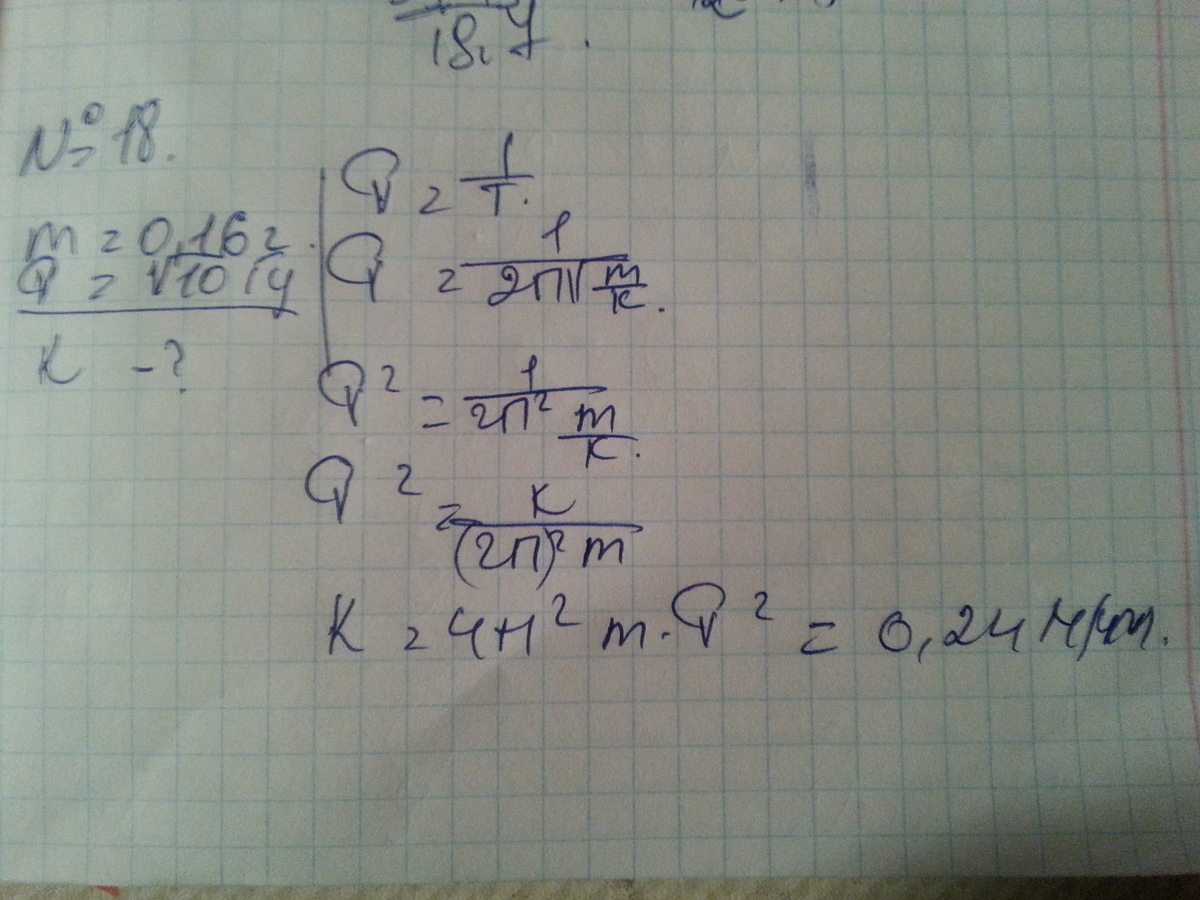 18,4.
№ 18.
m = 0,16 г.
ν = √10 Гц
K - ?
ν = 1/T.
ν = 1/2π√m/K.
ν² = 1/2π² m/K.
ν² = K/(2π)² m
K = 4π² m · ν² = 0,24 Н/м.